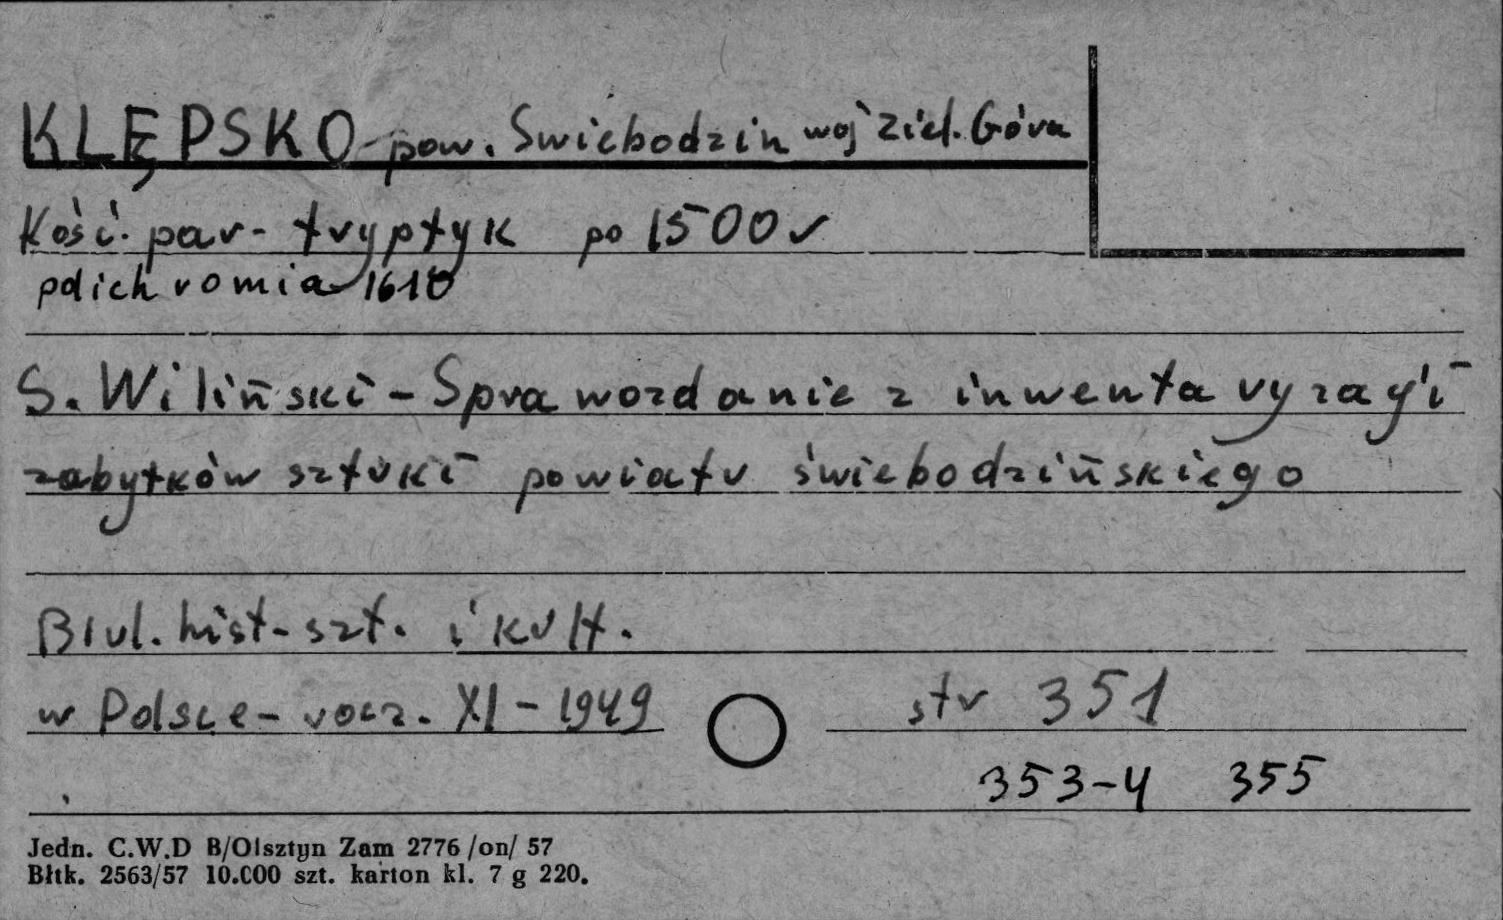 KLĘPSKO - pow. Swiebodzin woj Ziel. Góra
Kość. par - tryptyk po 1500 r
polichromia 1610
S. Wiliński - Sprawozdanie z inwentaryzacji
zabytków sztuki powiatu świebodzińskiego
Biul. hist - szt. i kult.
w Polsce - rocz. XI - 1949 str 351
353-4 355
Jedn. C.W.D B/Olsztyn Zam 2776 /on/ 57
Błtk. 2563/57 10.000 szt. karton kl. 7 g 220.